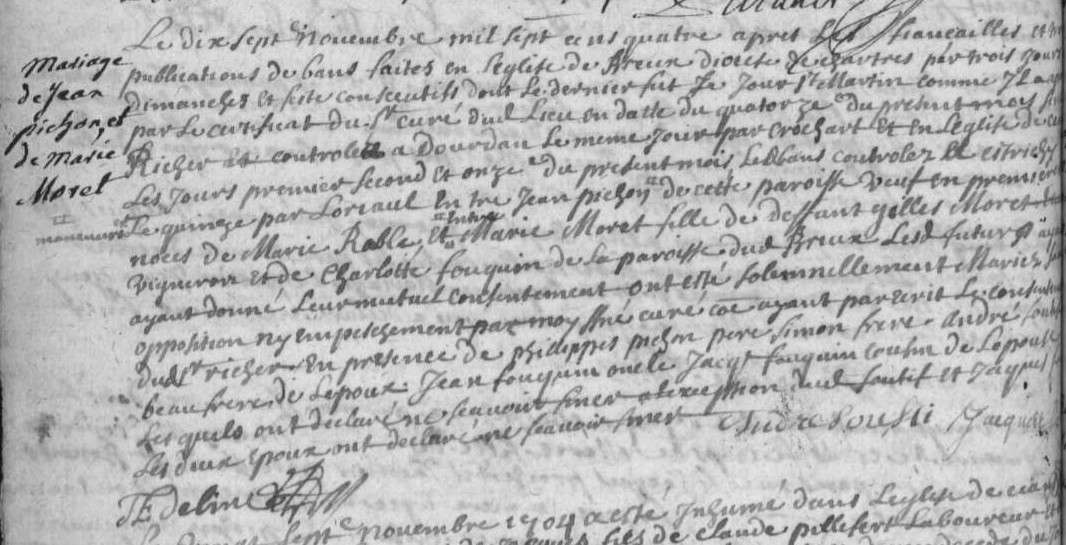 Le dix sept novembre mil sept cens quatre apres les fiancailles et
Mariage
publications de bans faites en l'eglise de Breux diocese de chartres par trois jours
de Jean
dimanches et feste consecutifs dont le dernier fut le Jour St Martin comme Il a
pichon, et
par le certificat du Sr curé dud lieu en datte du quatorze du present mois
de Marie
Richer et controlez a Dourdan le meme Jour par crochart et en l'eglise de
Moret
Les Jours premier second et onze du present mois les bans controlez
Le quinze par Loriaul Entre Jean pichon de cette paroisse veuf en premiere
noces de Marie Rable, et entre Marie Moret fille de deffunt gilles Moret
vigneron et de Charlotte fouquin de la paroisse dud Breux Lesd futurs
ayant donné leur mutuel consentement ont esté solemnellement Mariez
opposition ny empeschement par moy ssné curé coe ayant par ecrit le consente
dud Sr richer En presence de philippes pichon pere simon frere André
beaufrere de Lepoux Jean fouquin oncle Jacq fouquin cousin de Lepouse
Lesquels ont declaré ne scavoir siner a lexception dud soutif et Jaques
Les deux epoux ont declaré ne scavoir siner
Jacques
Edeline
sept novembre 1704 a esté Inhumé dans l'eglise de
fils de claude pillefert Laboureur